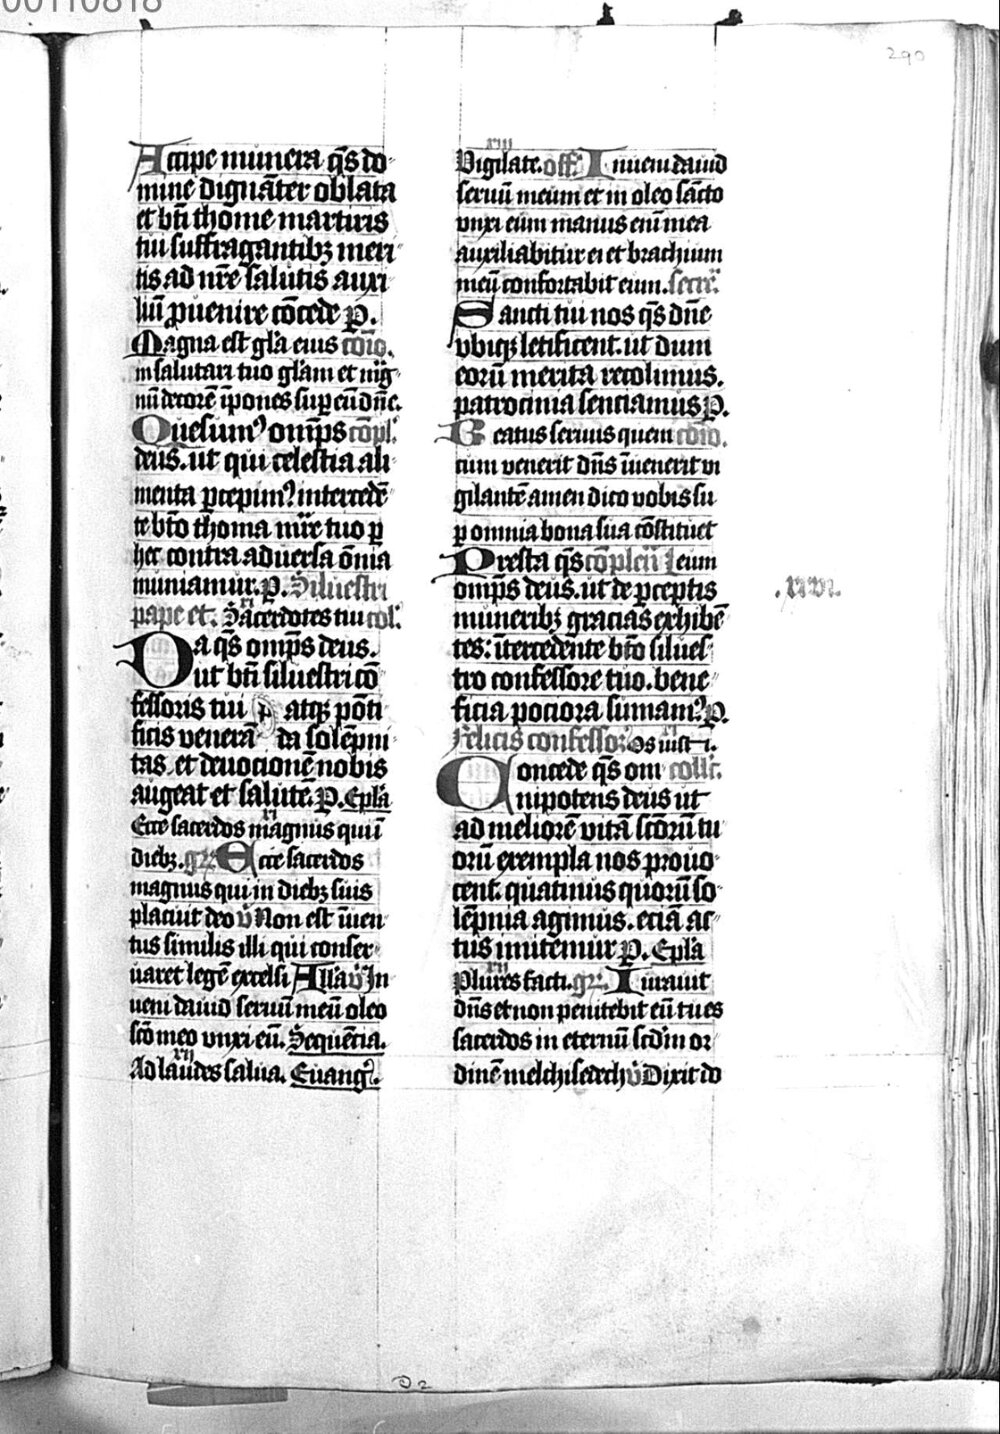 00110818
290
Accipe munera q̄s do
mine dignāter oblata
et bt̄i thome martiris
tui suffragantibꝫ meri
tis ad nr̄e salutis auxi
liū ꝓuenire cōcede ꝑ.
Magna est gl̄a eius cōıo.
in salutari tuo gl̄am et mig
nū decorē īpones suꝑ eū dn̄e.
Quesumꝰ omp̄s cōpl.
deus. ut qui celestia ali
menta ꝑcepimꝰ intercedē
te bt̄o thoma mr̄e tuo ꝑ
hec contra aduersa ōnia
muniamur. ꝑ. Siluestri
pape et. Sacerdotes tui col.
xi
Da q̄s omp̄s deus.
ut bt̄i siluestri cō
fessoris tui atqꝫ pōti
ficis venerā da solēpni
tas et deuocionē nobis
augeat et salutē. P. Epl̄a
Ecce sacerdos magnus qui ī
xi
diebꝫ. gr̄. Ecce sacerdos
magnus qui in diebꝫ suis
placuit deo v̄ Non est īuen
tus similis illi qui conser
uaret legē excelsi All̄a v̄ In
ueni dauid seruū meū oleo
scō meo vnxi eū. Sequēcia.
xii
Ad laudes salua. Euanḡ.
xiii
Vigilate. off. Inueni dauid
seruū meum et in oleo sācto
vnxi eum manus eni mea
auxiliabitur ei et brachium
meū confortabit eum. secre.
Sancti tui nos q̄s dn̄e
vbiqꝫ letificent. ut dum
eorū merita recolimus.
patrocinia senciamus P.
Beatus seruus quem cōıo.
cum venerit dn̄s īuenerit vi
gilantē amen dico vobis su
ꝑ omnia bona sua cōstituet
Presta q̄s cōplen̄ eum
omp̄s deus. ut de ꝑceptis
xiiii.
muneribꝫ gracias exhibē
tes: ītercedente bt̄o siluel
tro confessore tuo. bene
ficia pociora sumamꝰ P.
Felicis confessor. Os iusti.
Concede q̄s om coll̄.
nipotens deus ut
ad meliorē vitā scōrū tu
orū exempla nos prouo
cent. quatinus quorū so
lēpnia agimus. eciā ac
tus imitemur P. Epl̄a
xii
Plures facti. gr̄. Iurauit
dn̄s et non penitebit eū tu es
sacerdos in eternū scd̄m or
dinē melchisedech v̄ Dixit do
D 2